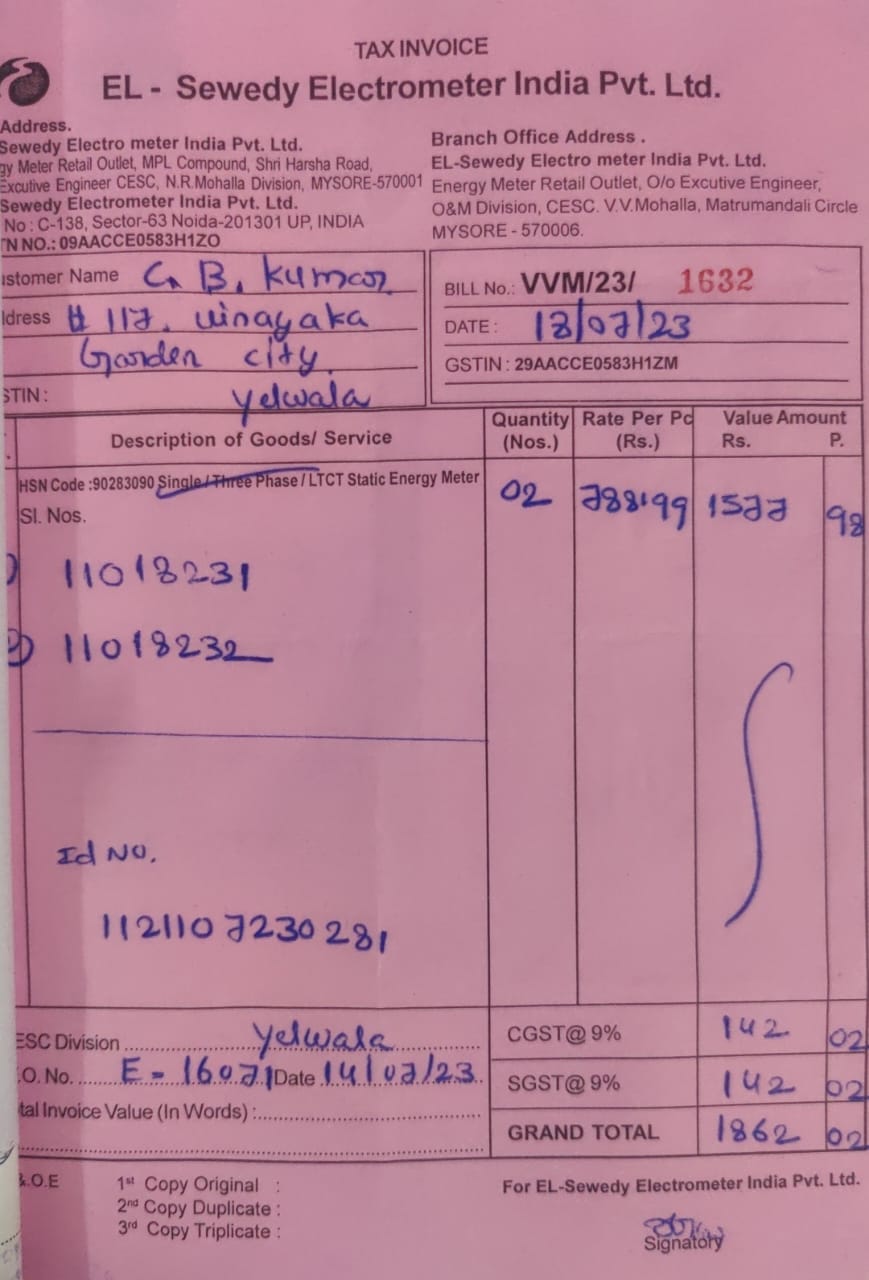 TAX INVOICE
EL - Sewedy Electrometer India Pvt. Ltd.
Address.
Sewedy Electro meter India Pvt. Ltd.
gy Meter Retail Outlet, MPL Compound, Shri Harsha Road,
Excutive Engineer CESC, N.R.Mohalla Division, MYSORE-570001
Sewedy Electrometer India Pvt. Ltd.
No : C-138, Sector-63 Noida-201301 UP, INDIA
TN NO.: 09AACCE0583H1ZO
Branch Office Address .
EL-Sewedy Electro meter India Pvt. Ltd.
Energy Meter Retail Outlet, O/o Excutive Engineer,
O&M Division, CESC. V.V.Mohalla, Matrumandali Circle
MYSORE - 570006.
ustomer Name C. B. Kumar
ldress # 117. Vinayaka
Garden city.
STIN : Yelwala
BILL No.: VVM/23/ 1632
DATE : 18/07/23
GSTIN : 29AACCE0583H1ZM
Description of Goods/ Service Quantity (Nos.) Rate Per Pc (Rs.) Value Amount Rs. P.
HSN Code :90283090 Single / Three Phase / LTCT Static Energy Meter 02 788.99 1577 98
Sl. Nos.
1) 11018231
2) 11018232
Id No.
1121107230281
ESC Division Yelwala
.O. No. E - 16071 Date 14/07/23
tal Invoice Value (In Words) :
CGST@ 9% 142 02
SGST@ 9% 142 02
GRAND TOTAL 1862 02
&.O.E
1st Copy Original :
2nd Copy Duplicate :
3rd Copy Triplicate :
For EL-Sewedy Electrometer India Pvt. Ltd.
Signatory